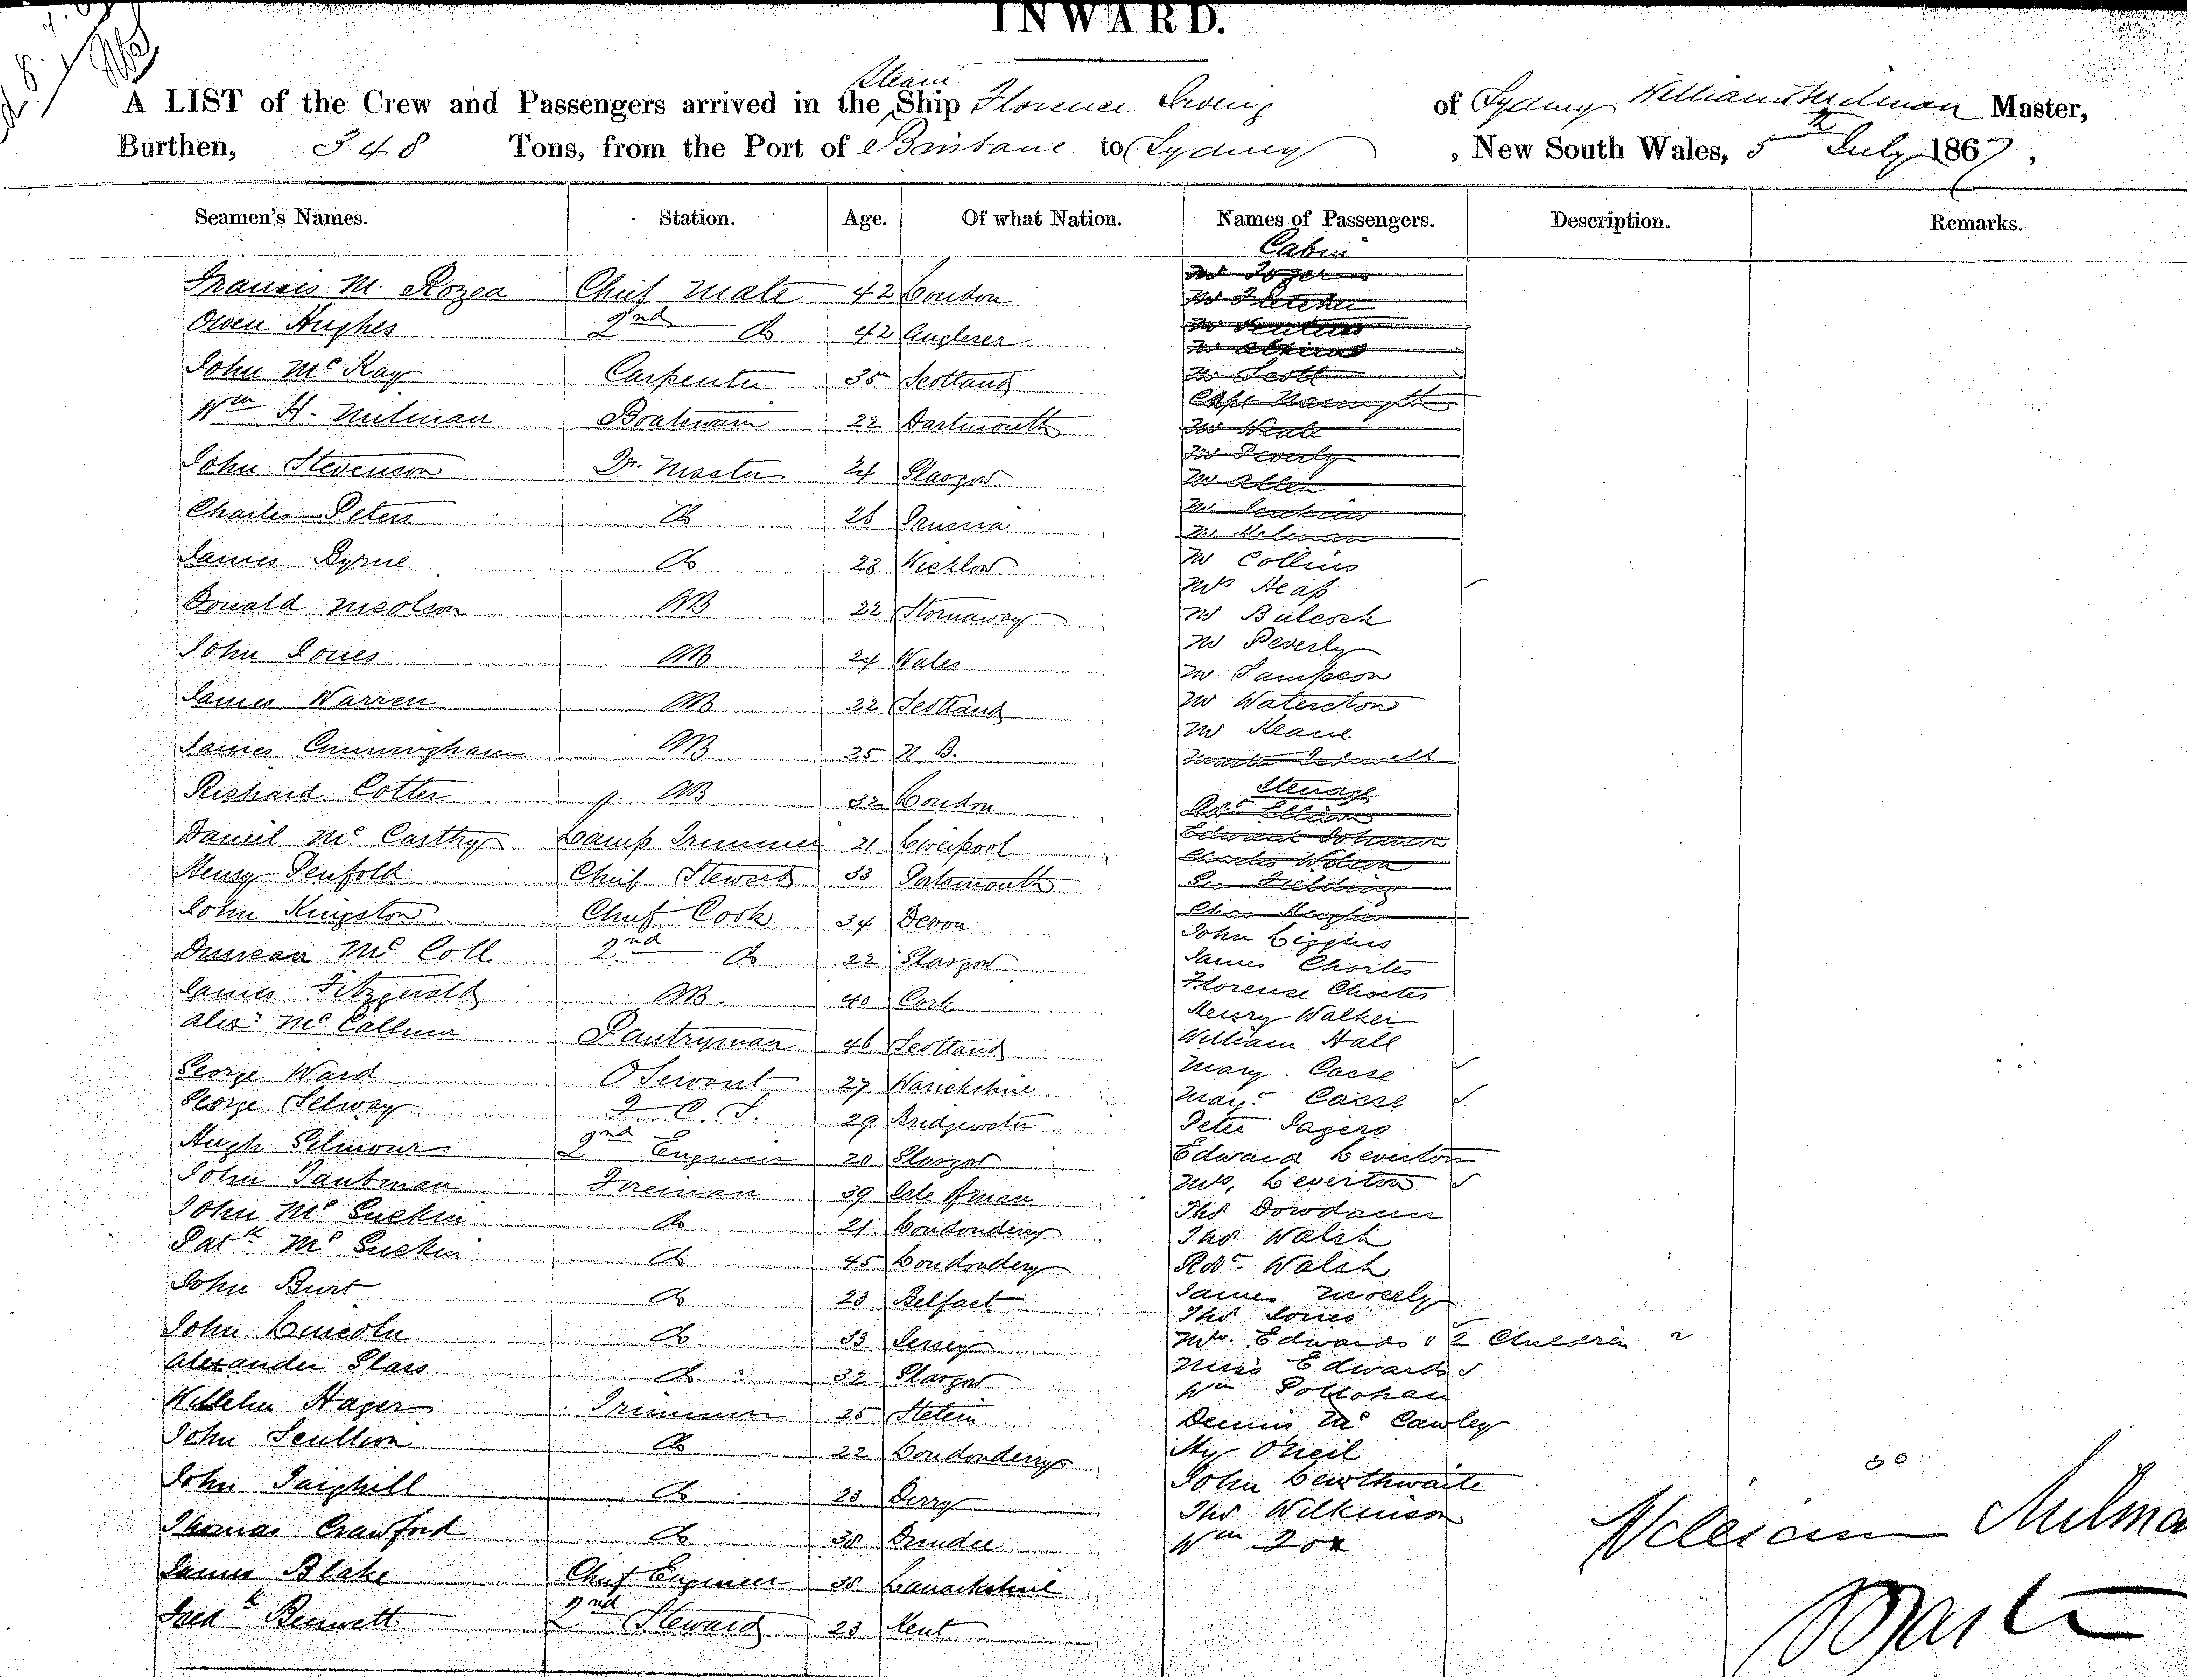 INWARD.
A LIST of the Crew and Passengers arrived in the Steam Ship Florence Irving of Sydney William Milman Master,
Burthen, 348 Tons, from the Port of Brisbane to Sydney, New South Wales, 5th July 1867,
Seamen's Names. Station. Age. Of what Nation. Names of Passengers. Description. Remarks.
Cabin
Francis M. Rozea Chief Mate 42 London
Owen Hughes 2nd Do 42 Anglesea
John McKay Carpenter 35 Scotland
Wm H. Milman Boatswain 22 Dartmouth
John Stevenson Qr. Master 24 Glasgow
Charles Peters Do 26 Prussia
James Byrne Do 28 Wicklow
Donald Nicolson AB 22 Stornaway
John Jones AB 24 Wales
James Warren AB 22 Scotland
James Cunningham AB 25 N. B.
Richard Cotter AB 32 London
Daniel McCarthy Lamp Trimmer 21 Liverpool
Henry Penfold Chief Steward 33 Portsmouth
John Kingston Chief Cook 34 Devon
Duncan McColl 2nd Do 22 Glasgow
James Fitzgerald AB 40 Cork
Alexr McCallum Pantryman 46 Scotland
George Ward 27 Warickshire
George Selway 29 Bridgewater
Hugh Gilmour 2nd Engineer 28 Glasgow
John Taubman Fireman 39 Isle of Man
John McGuckin Do 21 Londonderry
Patk McGuckin Do 45 Londonderry
John Burt Do 23 Belfast
John Lincoln Do 33 Jersey
Alexander Glass Do 32 Glasgow
Wilhelm Hager Trimmer 25 Stetin
John Scullion Do 22 Londonderry
John Do 23 Derry
Thomas Crawford Do 30 Dundee
James Blake Chief Engineer 38 Lanarkshire
Fredk Bennett 2nd Steward 23 Kent
Mr Scott
Mr Neale
Mr Allen
Mr Jenkins
Mr Milman
Mr Collins
Mrs Heap
Mr Bulcock
Mr Peverly
Mr Sampson
Mr Waterston
Mr Keane
Steerage
Robt Ellison
Edward Johnson
Charles Wilson
Chas Hughes
John Liggins
James Charles
Florence Charles
Henry Walker
William Hall
Mary Casse
Casse
Peter Sagers
Edward Leverton
Mrs. Leverton
Thos Dowdann
Thos Walsh
Robt Walsh
James Moody
Thos Jones
Mrs. Edwards & 2 Children
Miss Edwards
Wm
Dennis McCawley
Hy O'Neil
John Lewthwaite
Thos Wilkinson
Wm Fox
William Milman
Master